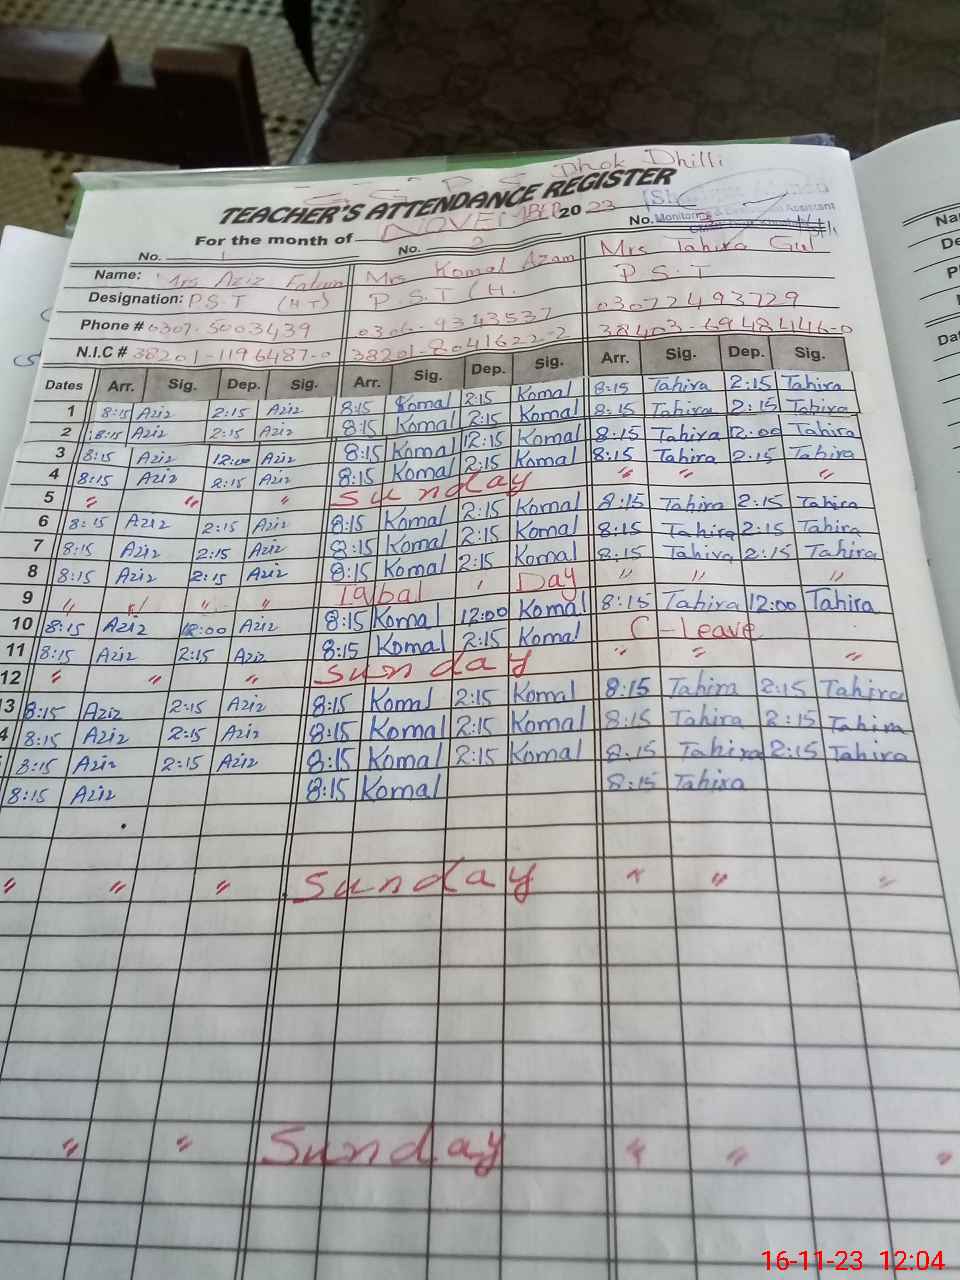 Dhok Dhilli
TEACHER'S ATTENDANCE REGISTER
For the month of NOVEMBER 2023
No. 1 No. 2 No.
Name: Mrs Aziz Mrs Komal Azam Mrs Tahira Gul
Designation: P.S.T (H.T) P.S.T (H. P.S.T
Phone # 0307-5003439 0306-9343537 03072493729
N.I.C # 38201-1196487-0 38201-8041622-2 38403-6948446-0
Dates Arr. Sig. Dep. Sig. Arr. Sig. Dep. Sig. Arr. Sig. Dep. Sig.
1 8:15 Aziz 2:15 Aziz 8:15 Komal 2:15 Komal 8:15 Tahira 2:15 Tahira
2 8:15 Aziz 2:15 Aziz 8:15 Komal 2:15 Komal 8:15 Tahira 2:15 Tahira
3 8:15 Aziz 12:00 Aziz 8:15 Komal 12:15 Komal 8:15 Tahira 12:00 Tahira
4 8:15 Aziz 2:15 Aziz 8:15 Komal 2:15 Komal 8:15 Tahira 2:15 Tahira
5 " " " Sunday " " "
6 8:15 Aziz 2:15 Aziz 8:15 Komal 2:15 Komal 8:15 Tahira 2:15 Tahira
7 8:15 Aziz 2:15 Aziz 8:15 Komal 2:15 Komal 8:15 Tahira 2:15 Tahira
8 8:15 Aziz 2:15 Aziz 8:15 Komal 2:15 Komal 8:15 Tahira 2:15 Tahira
9 " " " " Iqbal " Day " " "
10 8:15 Aziz 12:00 Aziz 8:15 Komal 12:00 Komal 8:15 Tahira 12:00 Tahira
11 8:15 Aziz 2:15 Aziz 8:15 Komal 2:15 Komal C-Leave
12 " " " Sunday " " "
13 8:15 Aziz 2:15 Aziz 8:15 Komal 2:15 Komal 8:15 Tahira 2:15 Tahira
4 8:15 Aziz 2:15 Aziz 8:15 Komal 2:15 Komal 8:15 Tahira 2:15 Tahira
8:15 Aziz 2:15 Aziz 8:15 Komal 2:15 Komal 8:15 Tahira 2:15 Tahira
8:15 Aziz 8:15 Komal 8:15 Tahira
" " " Sunday " " "
" " Sunday " " "
16-11-23 12:04